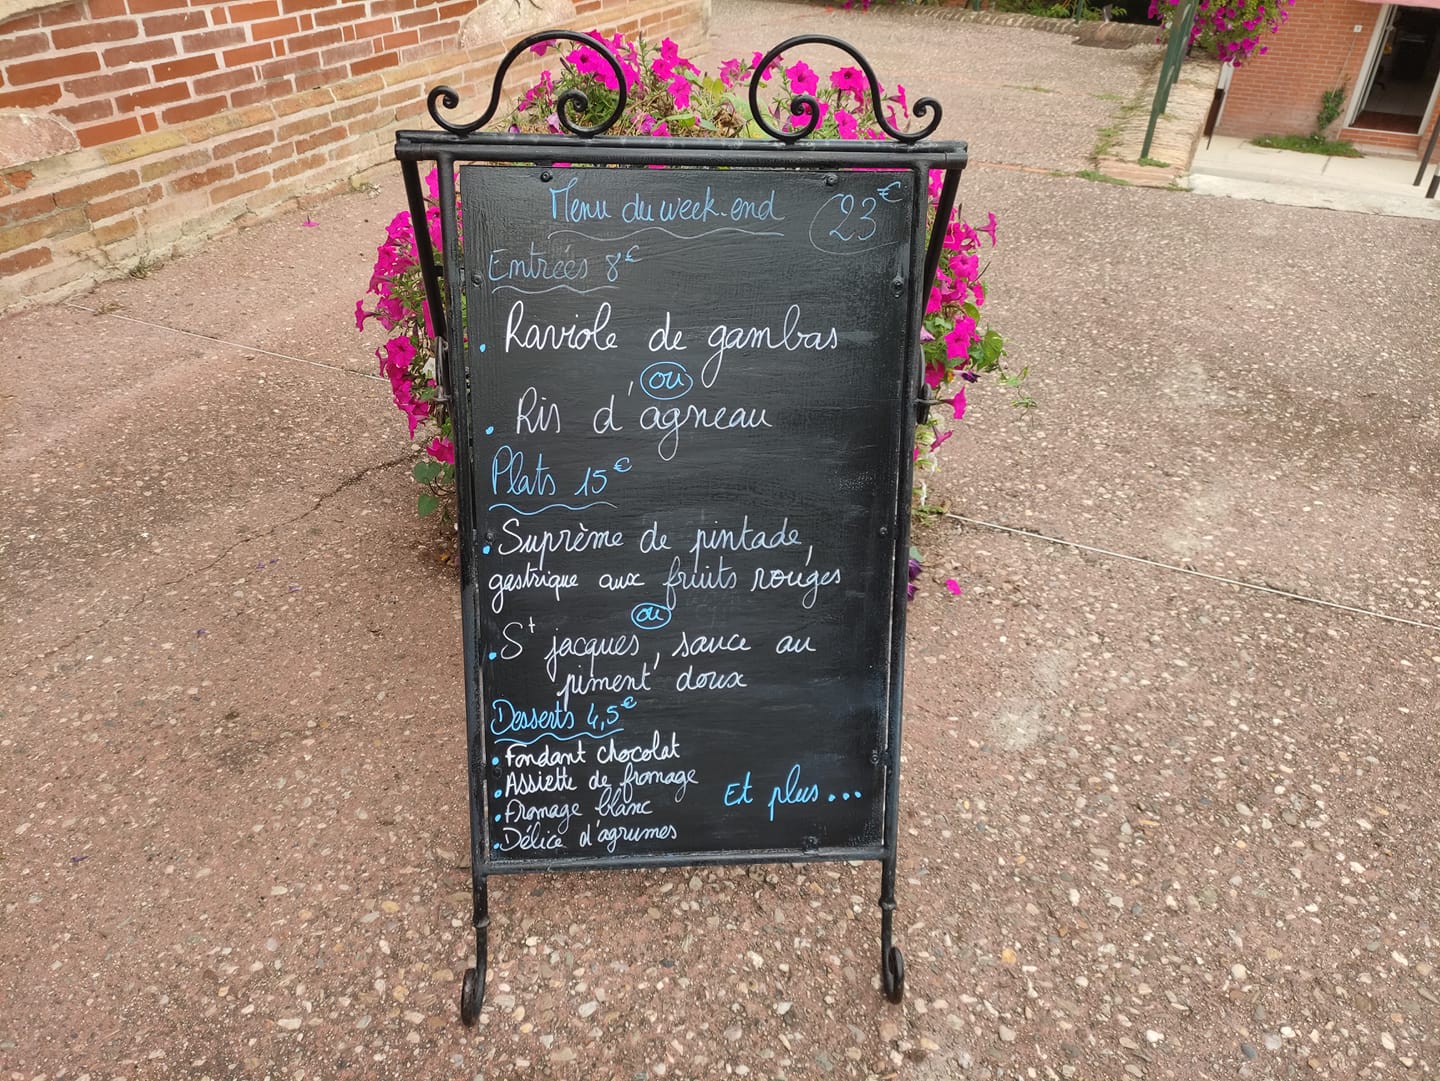 Menu du week-end 23€
Entrées 8€
• Raviole de gambas
ou
• Ris d'agneau
Plats 15€
• Suprème de pintade,
gastrique aux fruits rouges
ou
• St jacques, sauce au
piment doux
Desserts 4,5€
• Fondant chocolat
• Assiette de fromage
• Fromage blanc
• Délice d'agrumes
Et plus...